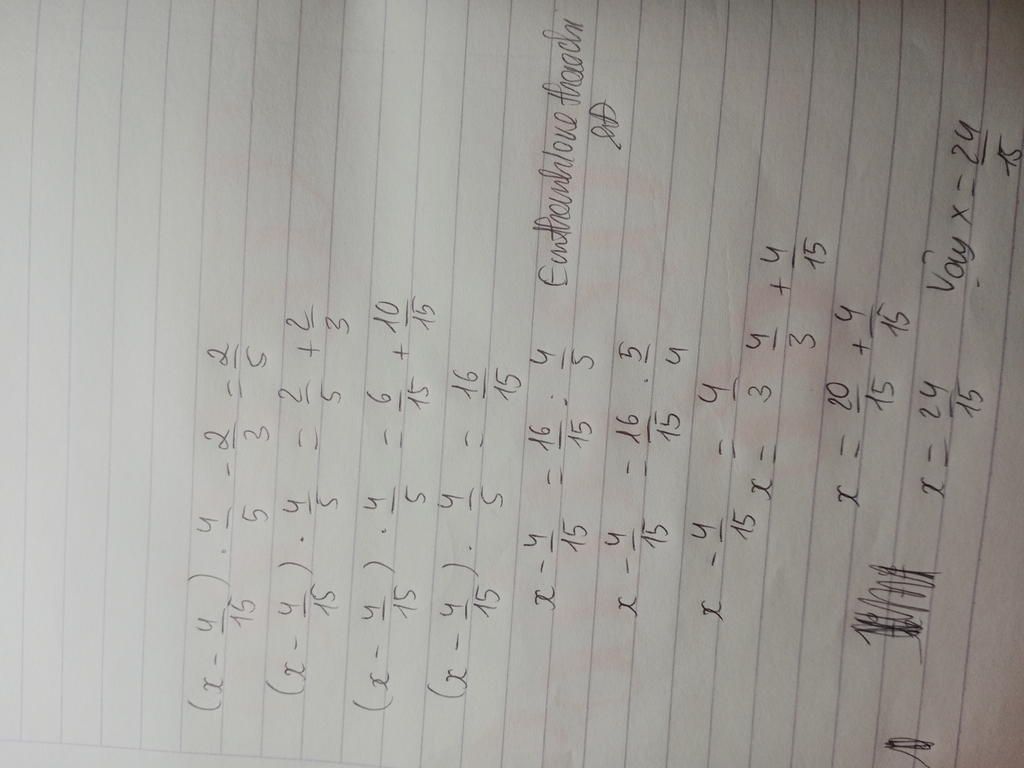 (x - 4/15) . 4/5 - 2/3 = 2/5
(x - 4/15) . 4/5 = 2/5 + 2/3
(x - 4/15) . 4/5 = 6/15 + 10/15
(x - 4/15) . 4/5 = 16/15
x - 4/15 = 16/15 : 4/5
x - 4/15 = 16/15 . 5/4
x - 4/15 = 4/3
x = 4/3 + 4/15
x = 20/15 + 4/15
x = 24/15 Vậy x = 24/15